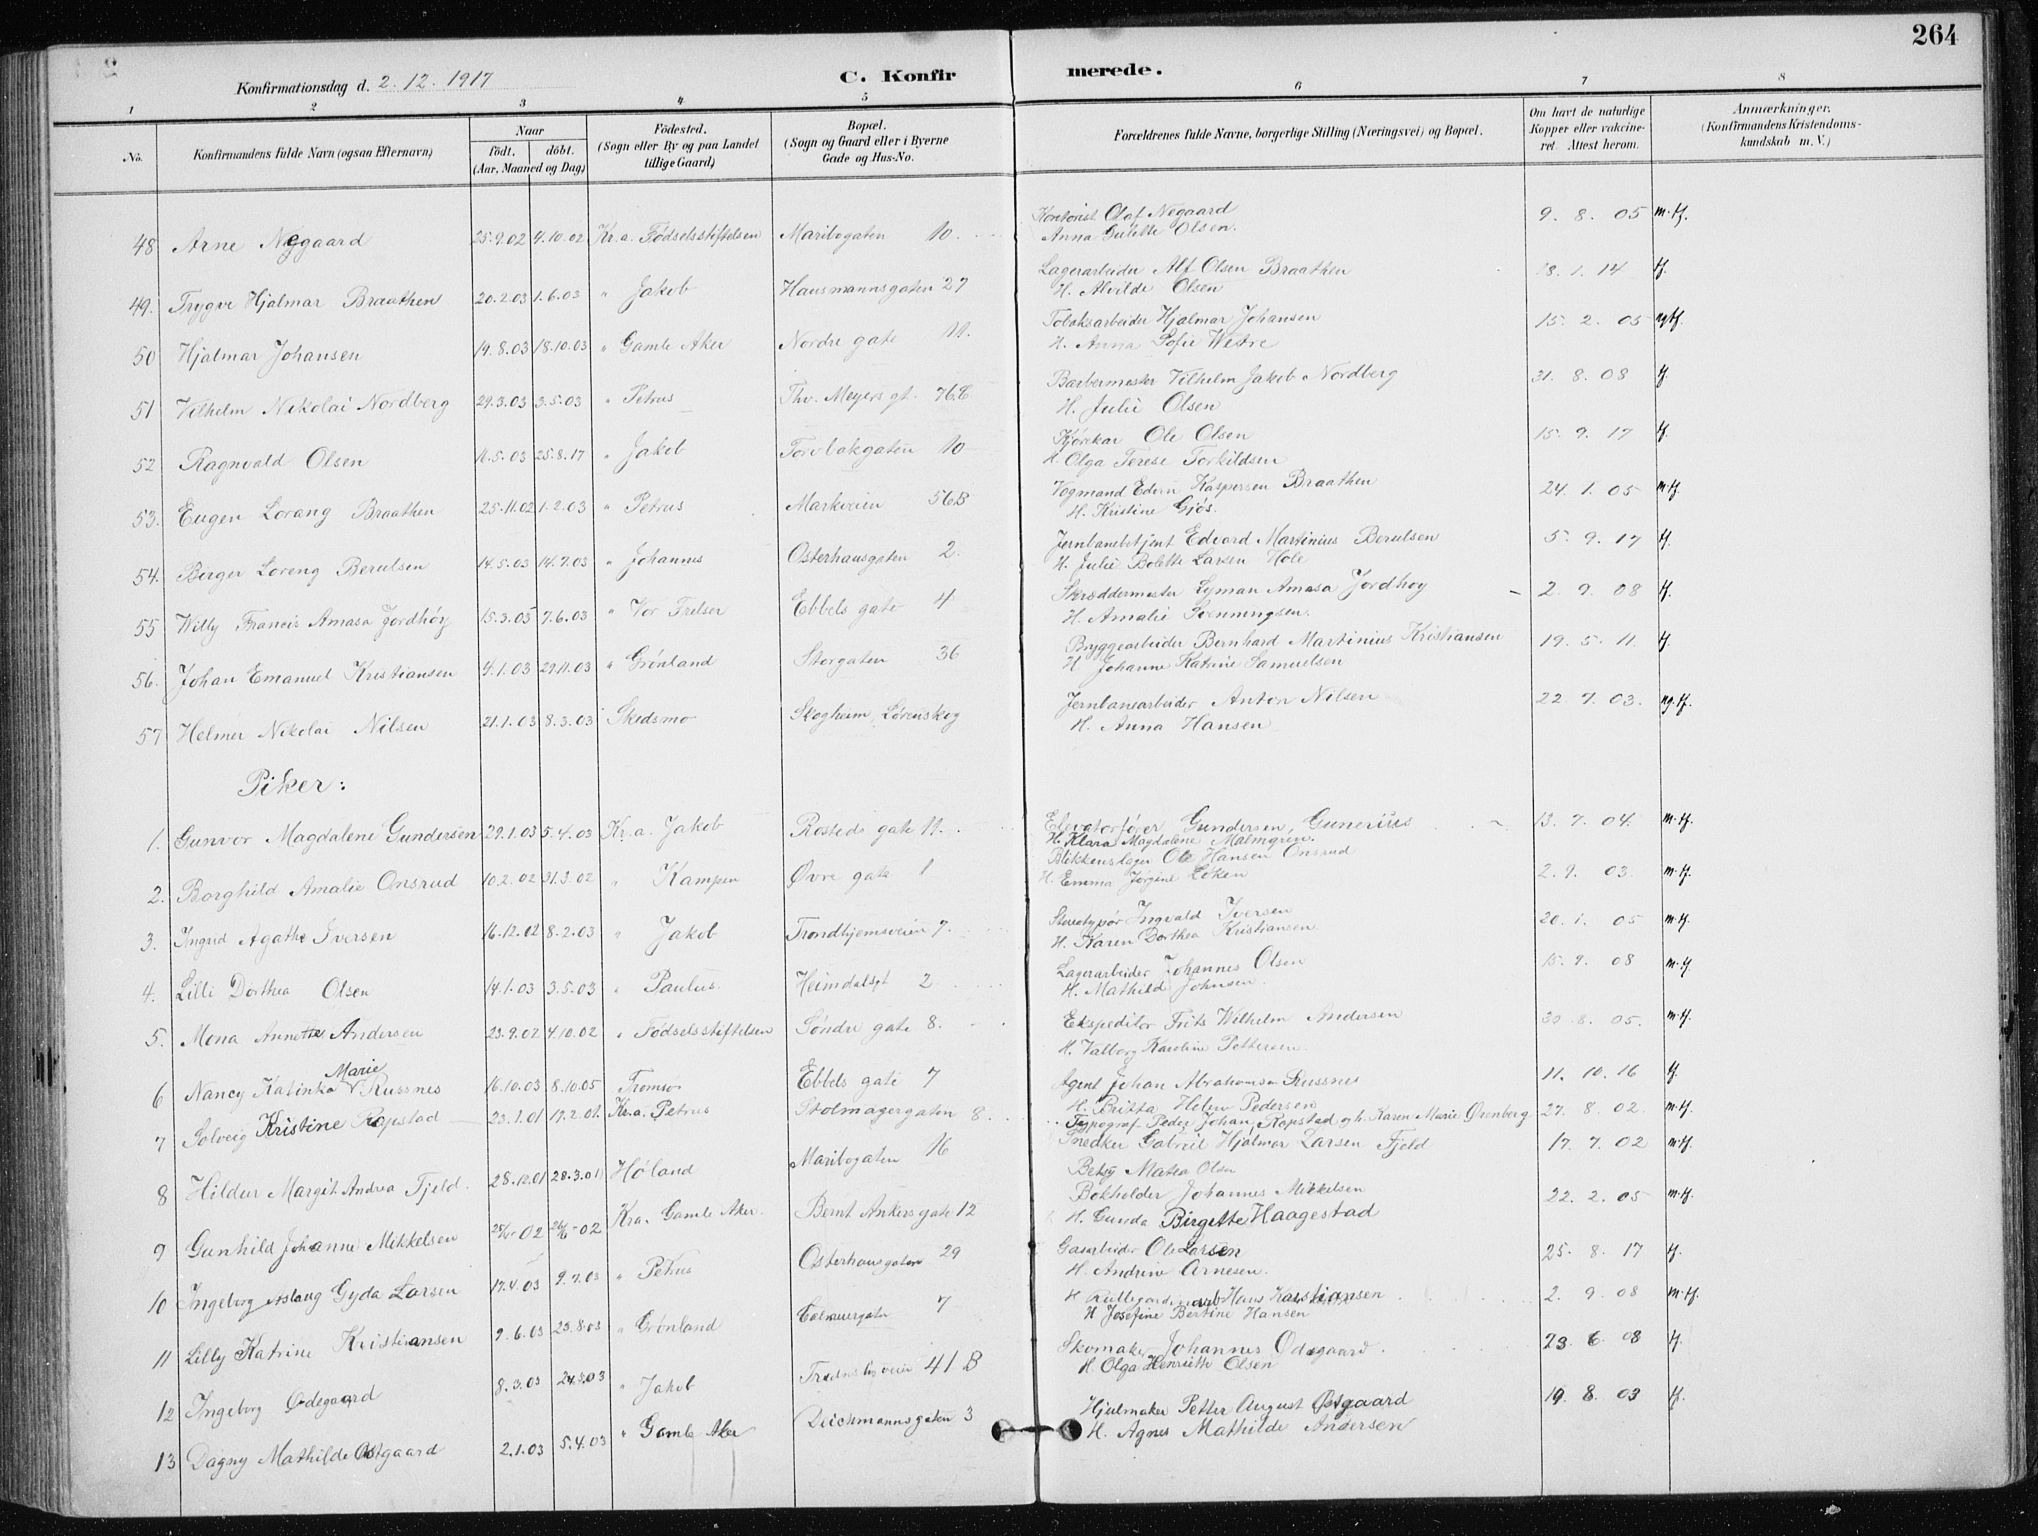 264
Konfirmationsdag d. 2. 12. 1917
C. Konfirmerede.
1 2 3 4 5 6 7 8
No. Konfirmandens fulde Navn (ogsaa Efternavn) Naar født. døbt. (Aar, Maaned og Dag) Fødested. (Sogn eller By og paa Landet tillige Gaard) Bopæl. (Sogn og Gaard eller i Byerne Gade og Hus-No. Forældrenes fulde Navne, borgerlige Stilling (Næringsvei) og Bopæl. Om havt de naturlige Kopper eller vaccineret. Attest herom. Anmærkninger. (Konfirmandens Kristendomskundskab m. V.)
48 Arne Negaard 25.9.02 4.10.02 Kr.a. Fødselsstiftelsen Maribogaten 10. Kontorist Olaf Negaard 9. 8. 05 m.tf.
Anna Gulette Olsen.
49. Trygve Hjalmar Braathen 20.2.03 1.6.03 " Jakob Hausmannsgaten 27 Lagerarbeider Alf Olsen Braathen 18. 1. 14 tf.
H. Alvilde Olsen
50 Hjalmar Johansen 14.8.03 18.10.03 " Gamle Aker Nordre gate 11. Toldksarbeider Hjalmar Johansen 15. 2. 05 ngtf.
H. Anna Sofie Westre
51 Vilhelm Nikolai Nordberg 29.3.03 3.5.03 " Petrus Thv. Meyers gt. 76.C. Barbermester Vilhelm Jakob Nordberg 31. 8. 08 tf.
H. Julie Olsen
52 Ragnvald Olsen 11.5.03 25.8.17 " Jakob Torvbakgaten 10 Kjørekar Ole Olsen 15. 9. 17 tf.
H. Olga Terese Torkildsen
53. Eugen Lorang Braathen 25.11.02 1.2.03 " Petrus Markveien 56B Vogmand Edvin Kaspersen Braathen 24. 1. 05 m.tf.
H. Kristine Gjøs.
54. Birger Loreng Berulsen 14.5.03 14.7.03 " Johannes Osterhausgaten 2. Jernbanebetjent Edvard Martinius Berulsen 5. 9. 17 tf.
H. Julie Bolette Larsen Hole
55 Willy Francis Amasa Jordhøy 15.3.03 7.6.03 " Vor Frelser Ebbels gate 4 Skræddermester Lyman Amasa Jordhoy 2. 9. 08 tf.
H. Amalie Svenningsen.
56. Johan Emanuel Kristiansen 4.1.03 29.11.03 " Grønland Storgaten 36 Bryggearbeider Bernhard Martinius Kristiansen 19. 5. 11. tf.
H. Johanne Katrine Samuelsen
57 Helmer Nikolai Nilsen 21.1.03 8.3.03 Skedsmo Skogheim, Lørenskog Jernbanearbeider Anton Nilsen 22. 7. 03. ng.tf.
H. Anna Hansen
Piker:
1. Gunvor Magdalene Gundersen 29.1.03 5.4.03 Kr.a. Jakob Rosteds gate 11. Elevatorfører Gundersen, Gunerius 13. 7. 04. m.tf.
H. Klara Magdalene Malmgren.
2. Borghild Amalie Onsrud 10.2.02 31.3.02 " Kampen Øvre gate 1 Blikkenslager Ole Hansen Onsrud 2. 9. 03. m.tf.
H. Emma Jørgine Løken
3. Ingrid Agathe Iversen 16.12.02 8.2.03 " Jakob Trondhjemsveien 7. Stereotypør Ingvald Iversen 20. 1. 05 m.tf.
H. Karen Dorthea Kristiansen
4. Lilli Dorthea Olsen 14.1.03 3.5.03 " Paulus. Heimdalsgt 2 Lagerarbeider Johannes Olsen 15. 9. 08 m.tf.
H. Mathild Johnsen.
5. Mona Annette Andersen 23.9.02 4.10.02 " Fødselsstiftelsen Søndre gate 8. Ekspeditør Frits Wilhelm Andersen 30. 8. 05. m.tf.
H. Valborg Karoline Pettersen
6 Nancy Katinka Marie Russnes 16.10.03 8.10.05 Tromsø Ebbels gate 7 Agent Johan Abrahamsen Russnes 11. 10. 16 tf.
H. Britta Helene Pedersen
7 Solveig Kristine Rapstad 23.1.01 17.2.01. Kr.a. Petrus Stolmagergaten 8. Typograf Peder Johan Rapstad og h. Karen Marie Ørenberg 27. 8. 02. m.tf.
8 Hildur Margit Andrea Fjeld. 28.12.01 28.3.01 Høland Maribogaten 16 Snedker Gabriel Hjalmar Larsen Fjeld 17. 7. 02 m.tf.
Betsy Matea Olsen
9 Gunhild Johanne Mikkelsen 02 02 Kra. Gamle Aker. Bernt Ankersgate 12 Bokholder Johannes Mikkelsen 22. 2. 05 m.tf.
H. Gunda Birgitte Haagestad
10 Ingeborg Aslaug Gyda Larsen 17.4.03 9.7.03 " Petrus Osterhausgaten 29 Gasarbeider Ole Larsen 25. 8. 17 tf.
H. Andrine Arnesen.
11 Lilly Katrine Kristiansen 9.6.03 23.8.03 " Grønland 7 Hans Kristiansen 2. 9. 08 m.tf.
H. Josefine Bertine Hansen
12 Ingeborg Ødegaard 8.3.03 24.5.03 " Jakob 41 B Skomaker Johannes Ødegaard. 23. 6. 08 tf.
H. Olga Henriette Olsen
13 Dagny Mathilde Østgaard 2.1.03 5.4.03 " Gamle Aker Deichmannsgaten 3 Hjulmaker Petter August Østgaard 19. 8. 03 tf.
H. Agnes Mathilde Andersen